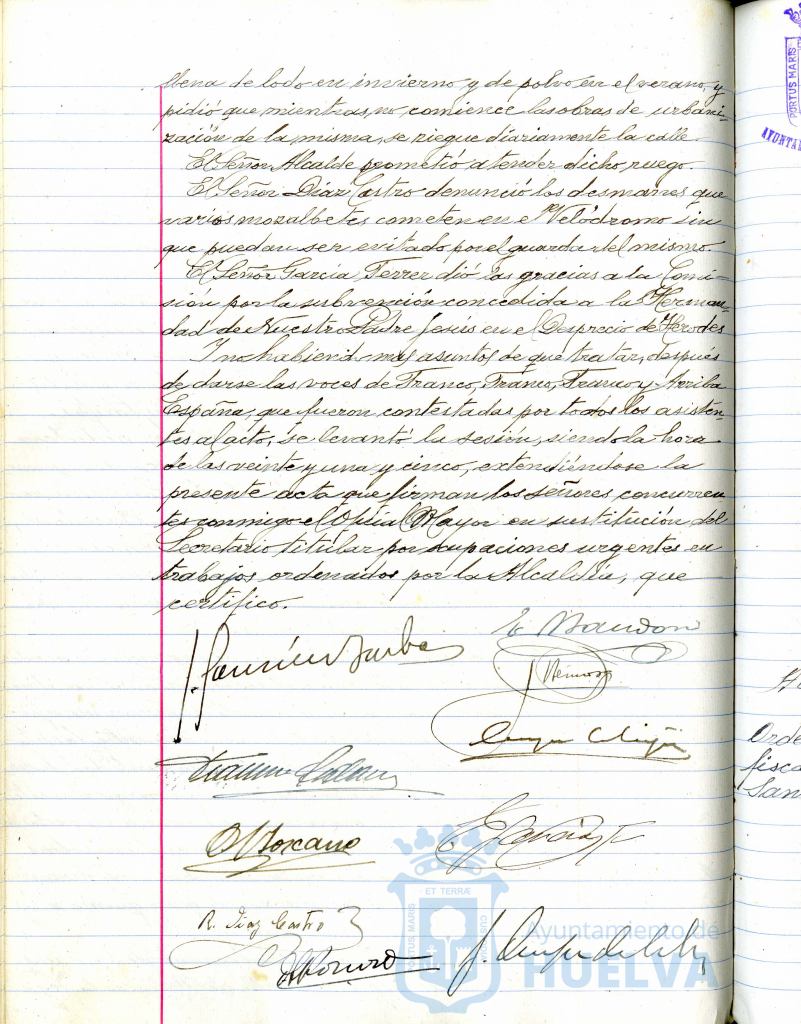 llena de lodo en invierno y de polvo en el verano, y
pidió que mientras no comience las obras de urbani-
zación de la misma, se riegue diariamente la calle.
El Señor Alcalde prometió atender dicho ruego.
El Señor Díaz Castro denunció los desmanes que
varios mozalbetes cometen en el Velódromo sin
que puedan ser evitado por el guarda del mismo.
El Señor García Ferrer dió las gracias a la Comi-
sión por la subvención concedida a la Herman-
dad de Nuestro Padre Jesús en el Desprecio de Herodes
Y no habiendo mas asuntos de que tratar, después
de darse las voces de Franco, Franco, Franco y Arriba
España, que fueron contestadas por todos los asisten-
tes al acto, se levantó la sesión, siendo la hora
de las veinte y una y cinco, extendiéndose la
presente acta que firman los señores concurren-
tes conmigo el Oficial Mayor en sustitución del
Secretario titular por ocupaciones urgentes en
trabajos ordenados por la Alcaldía, que
certifico.
R. Díaz Castro
ET TERRÆ
PORTUS MARIS
CUSTODIA
Ayuntamiento de
HUELVA
PORTUS MARIS
AYUNTA
Orde
fisca
San